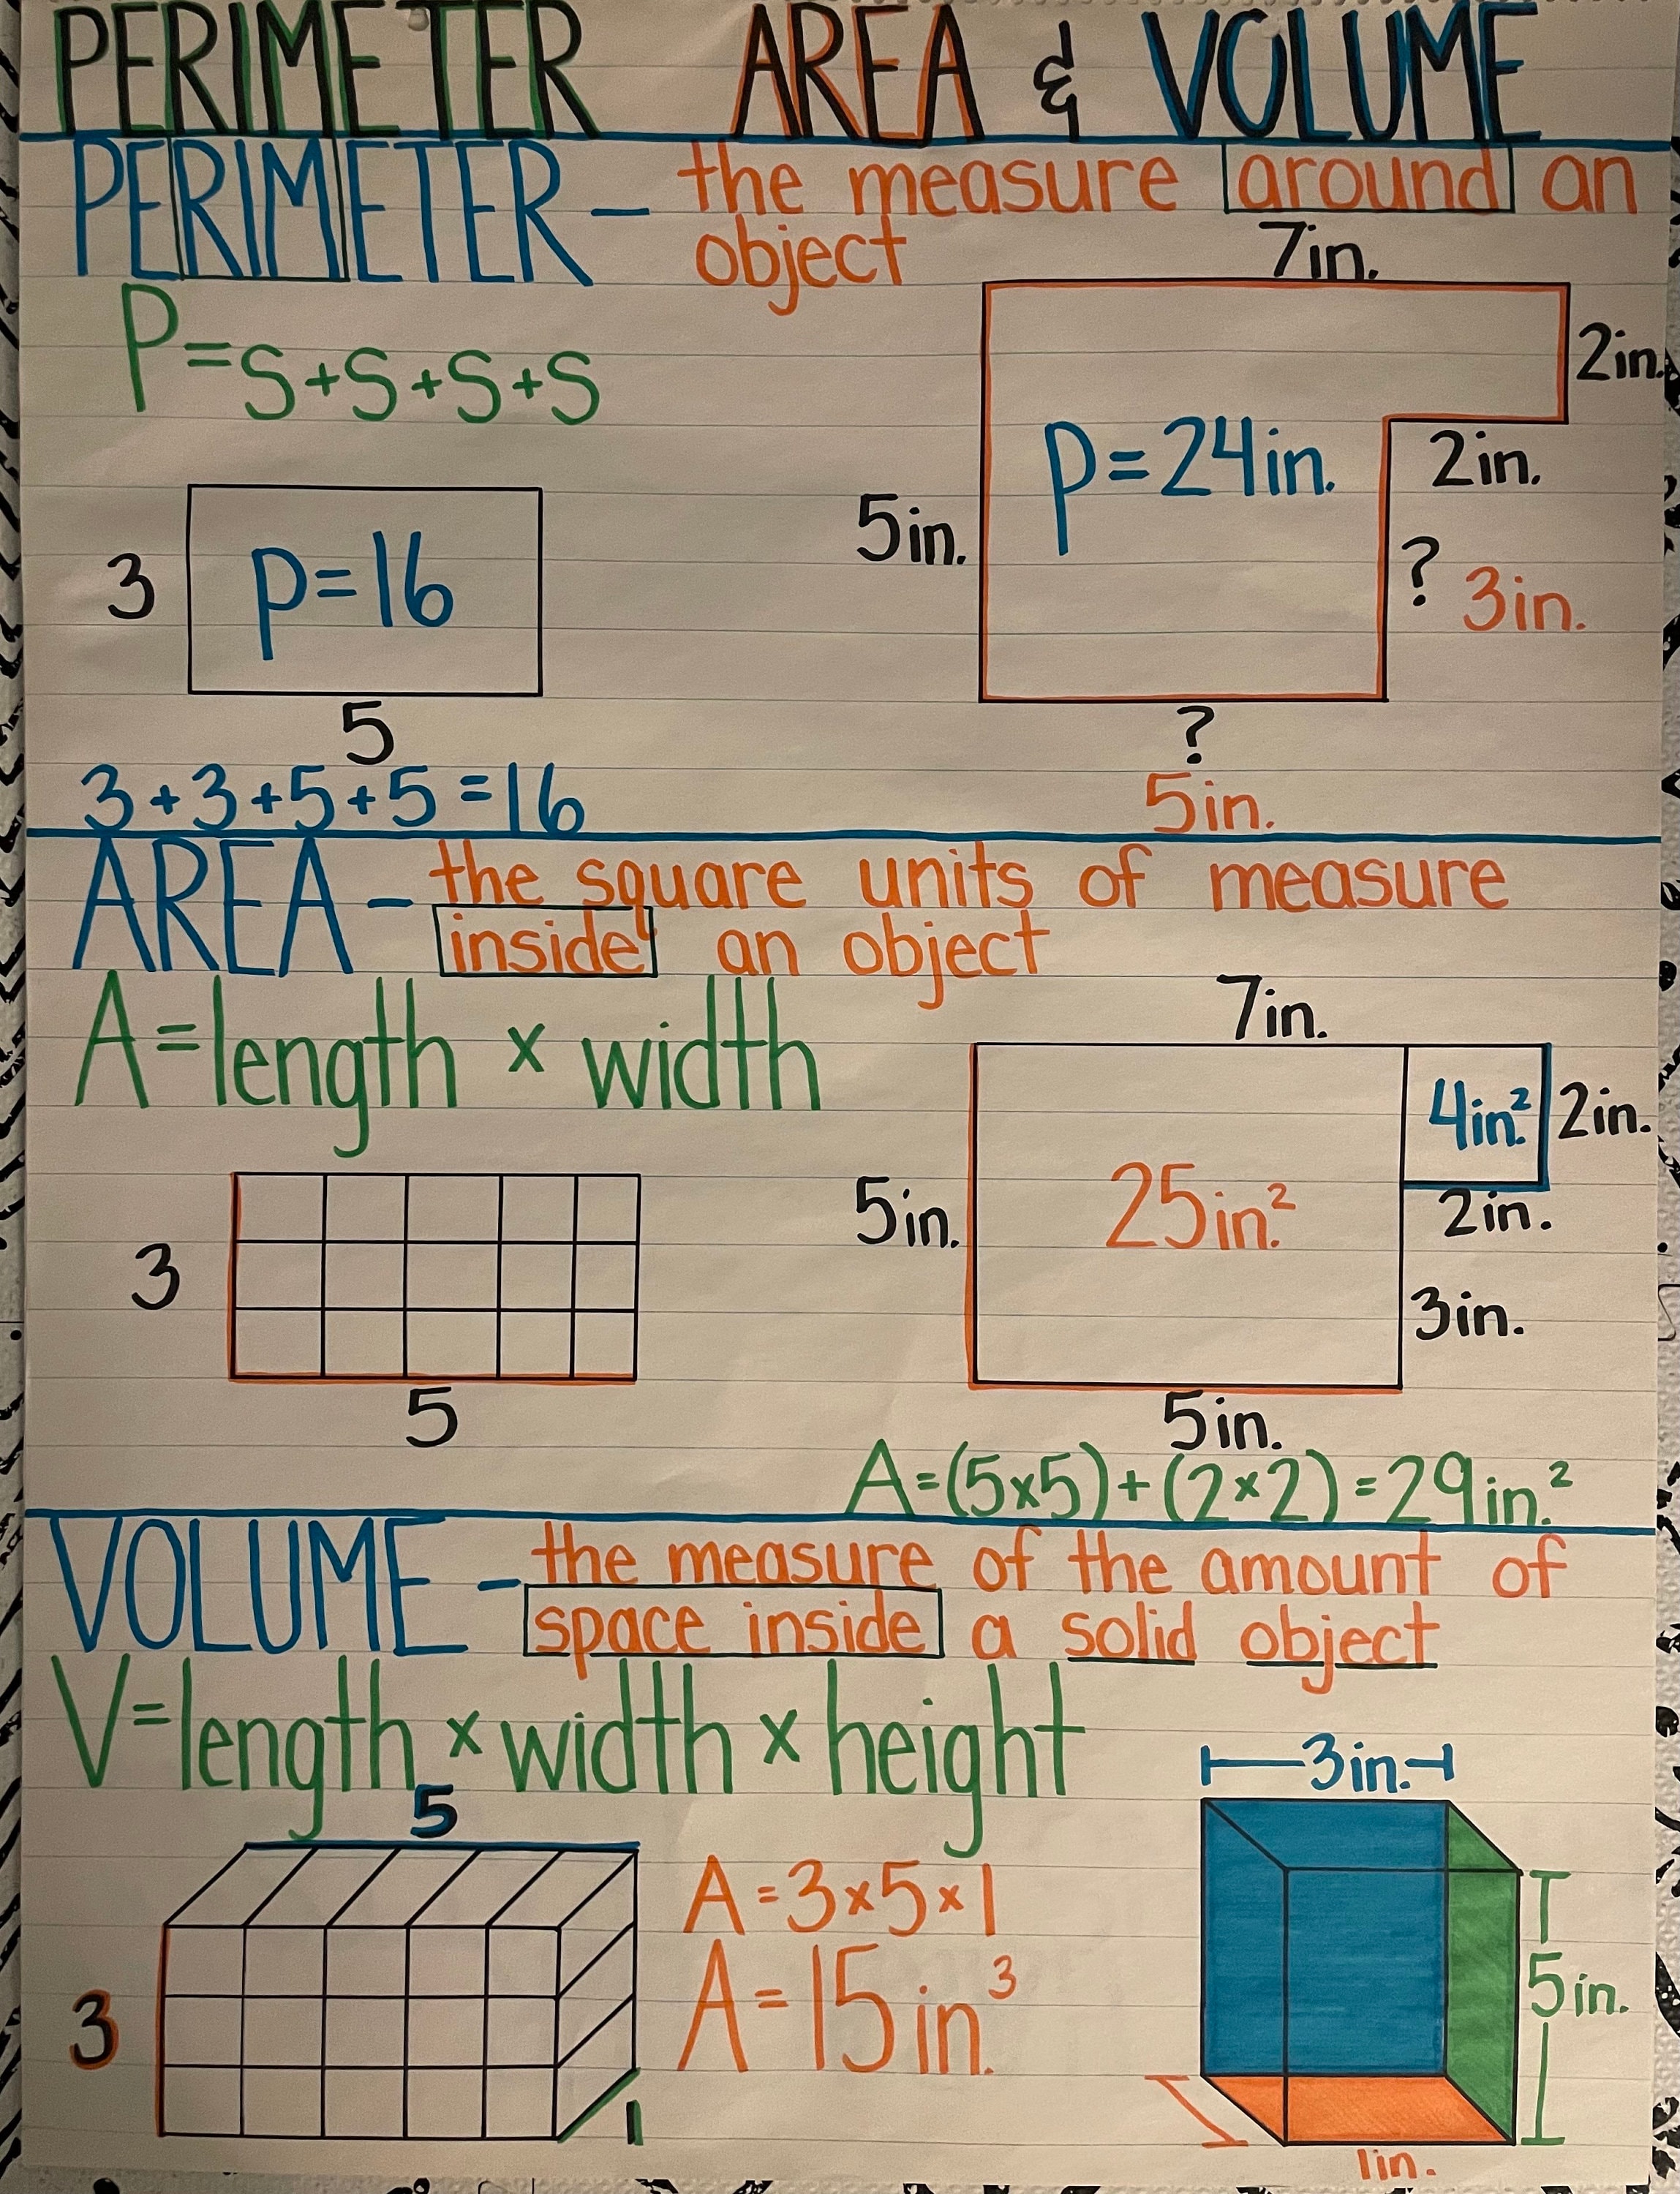 PERIMETER AREA & VOLUME
PERIMETER - the measure around an
object
P=s+s+s+s
7in.
2in.
2in.
p=24in.
5in.
? 3in.
?
5in.
3
p=16
5
3+3+5+5=16
AREA - the square units of measure
inside an object
A=length x width
3
5
7in.
4in.²
2in.
2in.
5in.
25in.²
3in.
5in.
A=(5x5)+(2x2)=29in.²
VOLUME - the measure of the amount of
space inside a solid object
V=length x width x height
5
3
1
A=3x5x1
A=15in.³
3in.
5in.
1in.